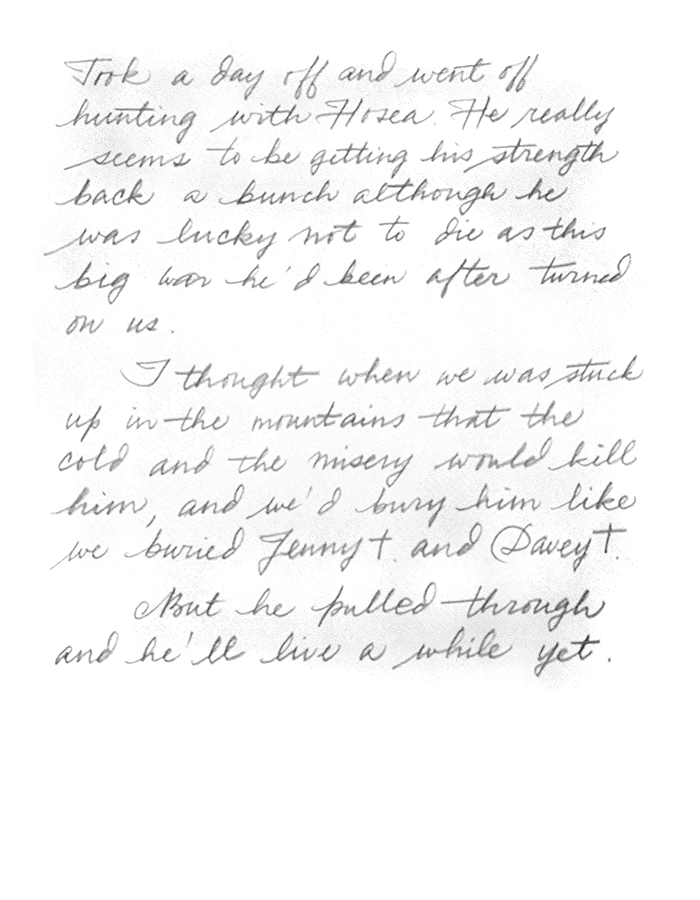 Took a day off and went off
hunting with Hosea. He really
seems to be getting his strength
back a bunch although he
was lucky not to die as this
big war he'd been after turned
on us.
I thought when we was stuck
up in the mountains that the
cold and the misery would kill
him, and we'd bury him like
we buried Jenny†. and Davey†.
But he pulled through
and he'll live a while yet.